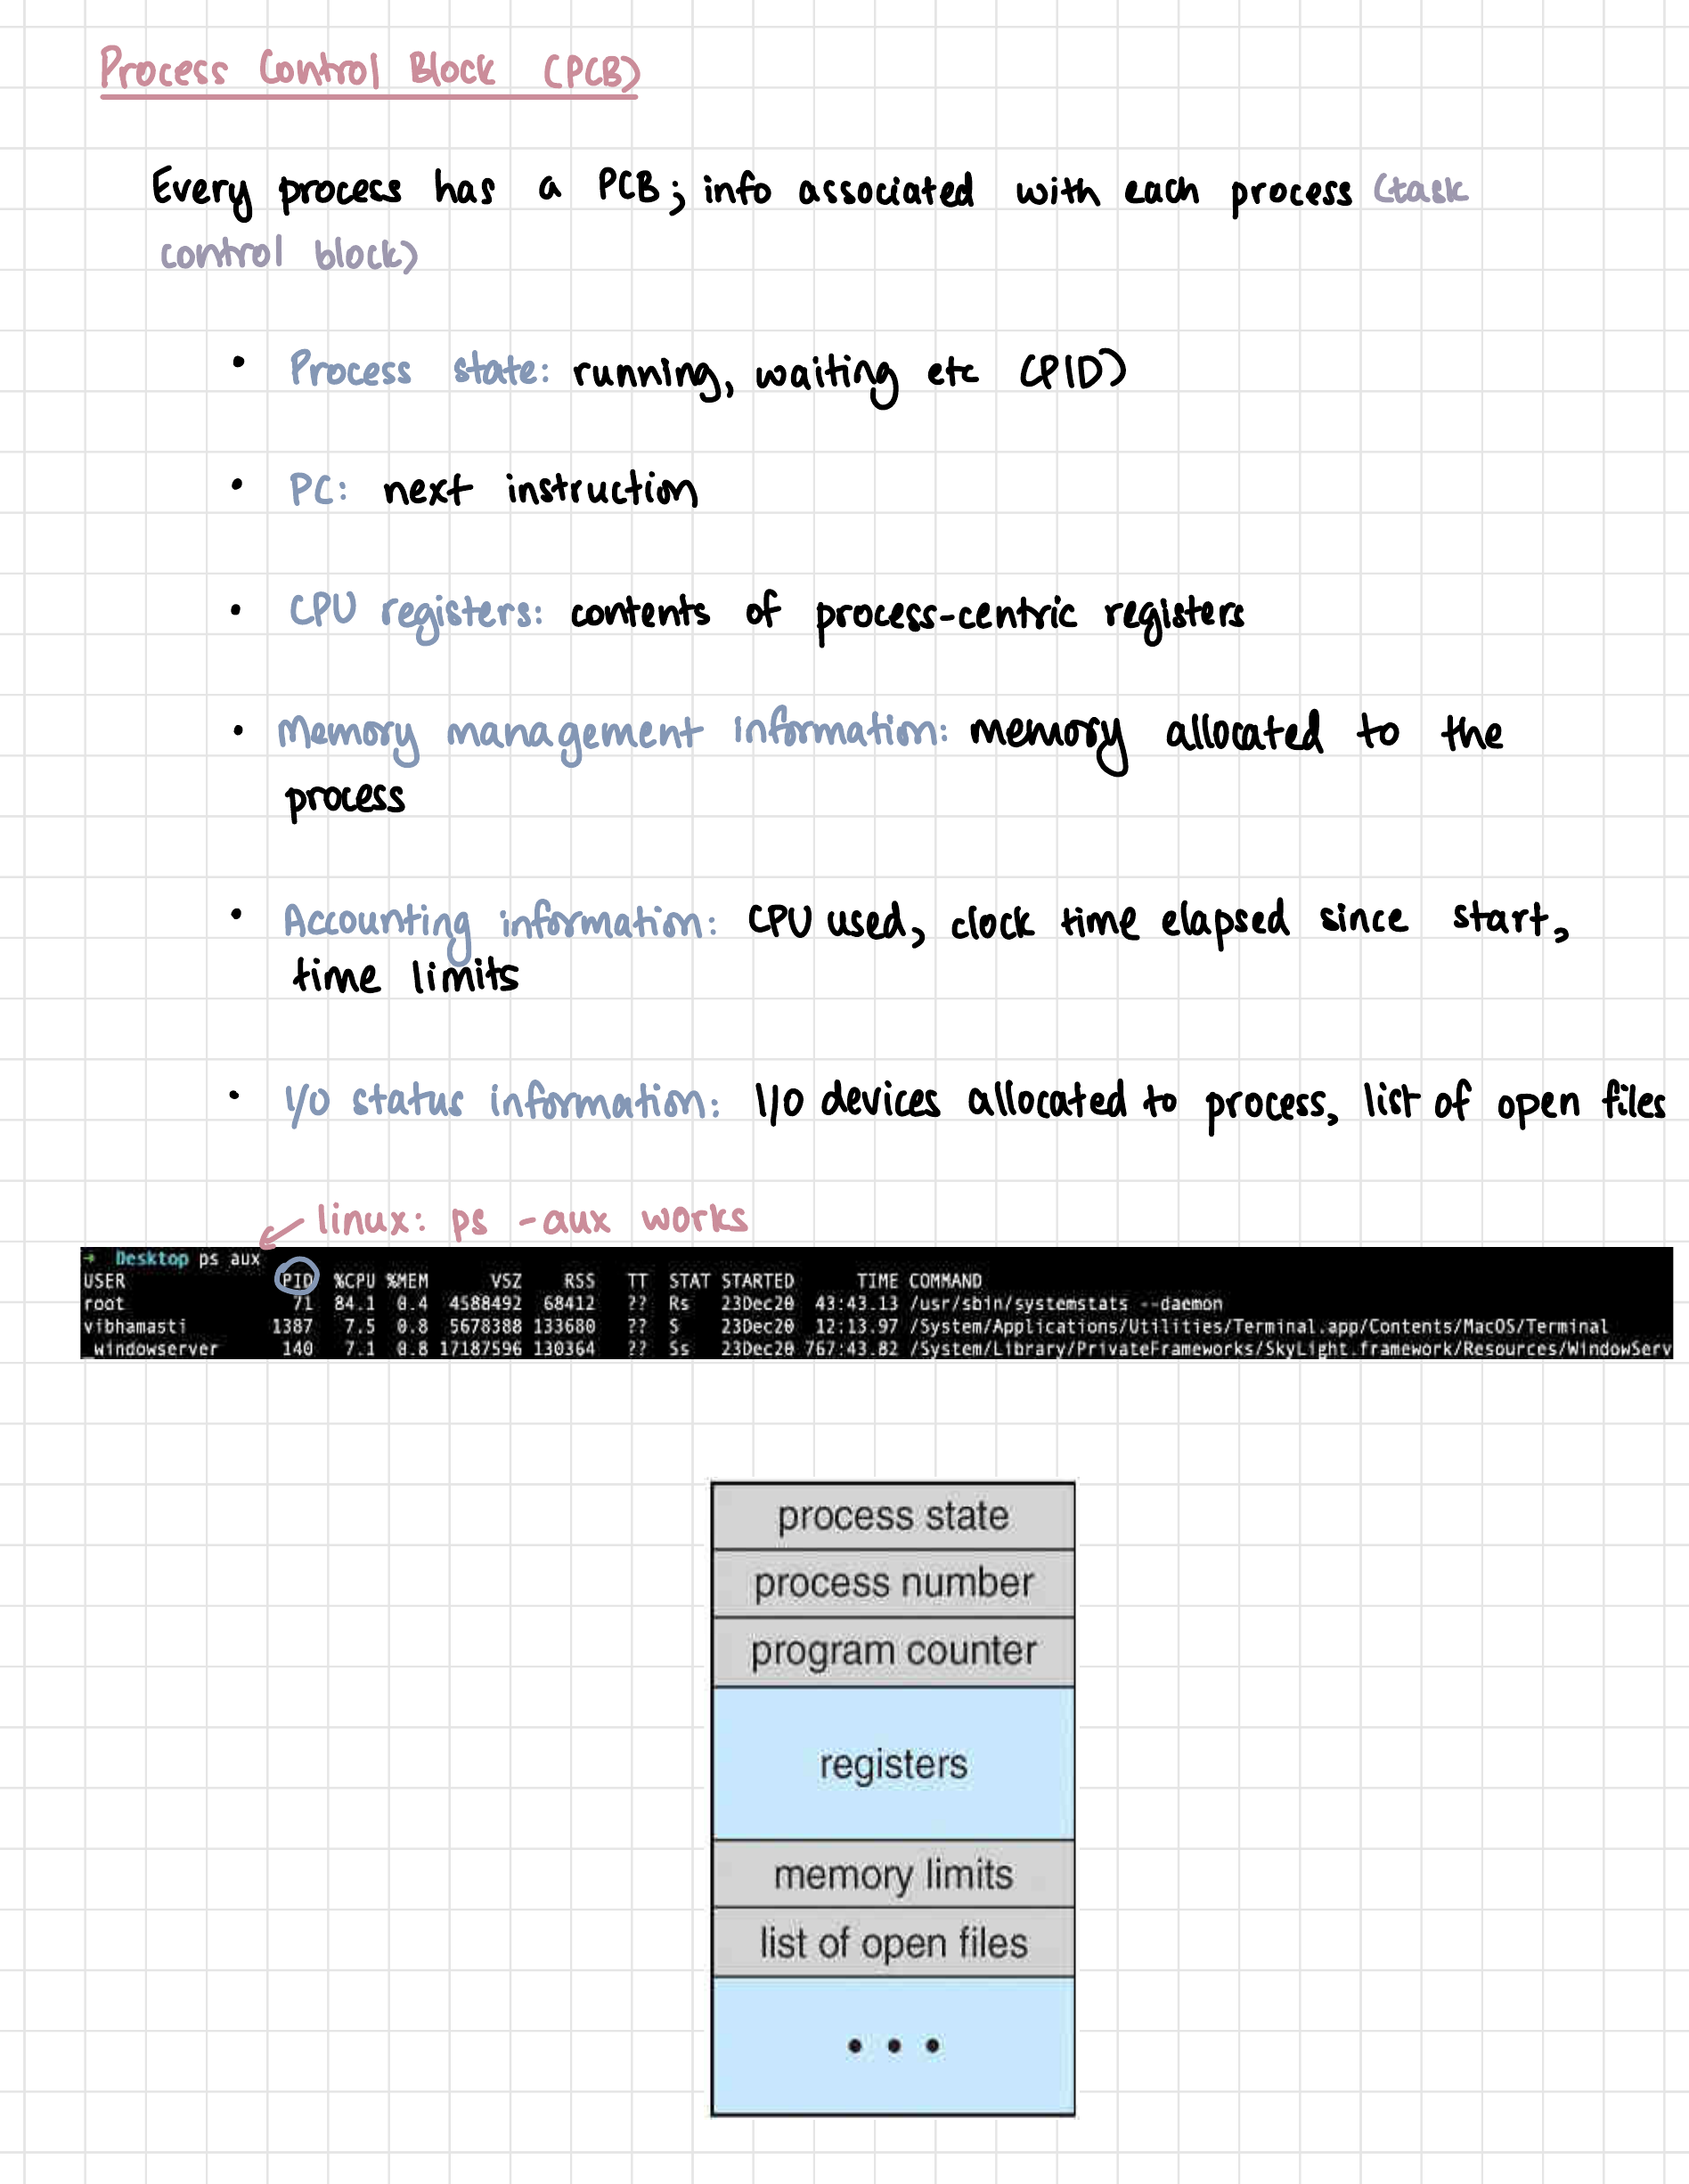 Process Control Block (PCB)
Every process has a PCB; info associated with each process (task
control block)
• Process state: running, waiting etc (PID)
• PC: next instruction
• CPU registers: contents of process-centric registers
• Memory management information: memory allocated to the
process
• Accounting information: CPU used, clock time elapsed since start,
time limits
• I/O status information: I/O devices allocated to process, list of open files
linux: ps -aux works
→ Desktop ps aux
USER PID %CPU %MEM VSZ RSS TT STAT STARTED TIME COMMAND
root 71 84.1 0.4 4588492 68412 ?? Rs 23Dec20 43:43.13 /usr/sbin/systemstats --daemon
vibhamasti 1387 7.5 0.8 5678388 133680 ?? S 23Dec20 12:13.97 /System/Applications/Utilities/Terminal.app/Contents/MacOS/Terminal
_windowserver 140 7.1 0.8 17187596 130364 ?? Ss 23Dec20 767:43.82 /System/Library/PrivateFrameworks/SkyLight.framework/Resources/WindowServ
process state
process number
program counter
registers
memory limits
list of open files
• • •